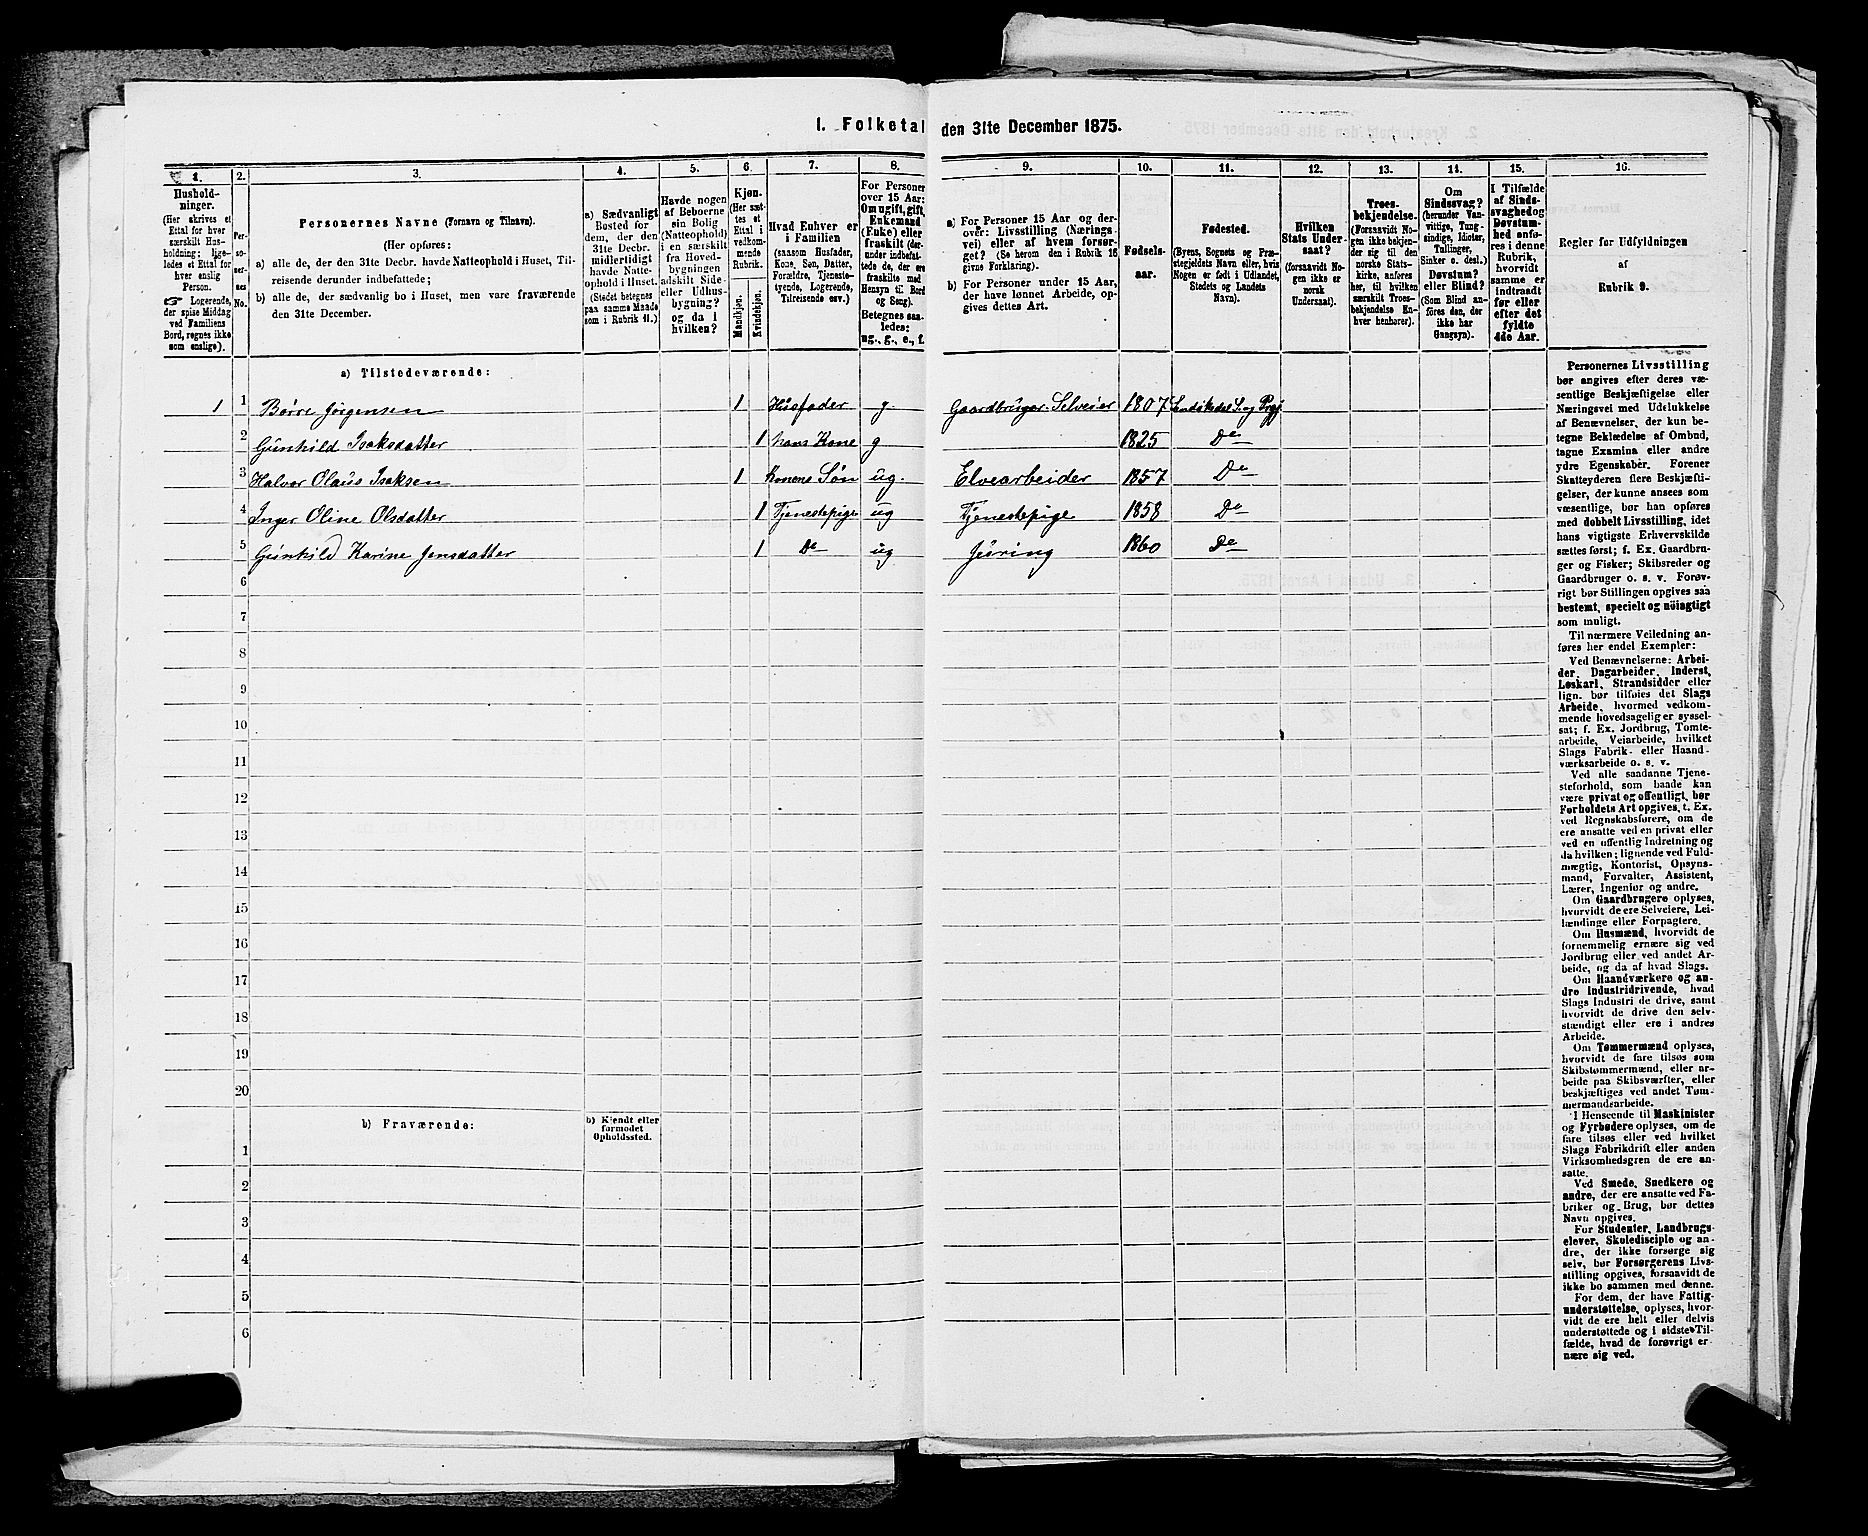 1. Folketal den 31te December 1875.
1. 2. 3. 4. 5. 6. 7. 8. 9. 10. 11. 12. 13. 14. 15. 16.
Hushold-
ninger.
(Her skrives et
Ettal for hver
særskilt Hus-
holdning; lige-
ledes et Ettal for
hver enslig
Person.
☞ Logerende,
der spise Middag
ved Familiens
Bord, regnes ikke
som enslige).
Per-
so-
ner-
nes
No.
Personernes Navne (Fornavn og Tilnavn).
(Her opføres:
a) alle de, der den 31te Decbr. havde Natteophold i Huset, Til-
reisende derunder indbefattede;
b) alle de, der sædvanlig bo i Huset, men vare fraværende
den 31te December.
a) Sædvanligt
Bosted for
dem, der den
31te Decbr.
midlertidigt
havde Natte-
ophold i Huset.
(Stedet betegnes
paa samme Maade
som i Rubrik 11.)
Havde nogen
af Beboerne
sin Bolig
(Natteophold)
i en særskilt
fra Hoved-
bygningen
adskilt Side-
eller Udhus-
bygning?
og da i
hvilken?
Kjøn.
(Her sæt-
tes et
Ettal i
vedkom-
mende
Rubrik.
Mandkjøn.
Kvindekjøn.
Hvad Enhver er
i Familien
(saasom Husfader,
Kone, Søn, Datter,
Forældre, Tjeneste-
tyende, Logerende,
Tilreisende osv.)
For Personer
over 15 Aar:
Om ugift, gift,
Enkemand
(Enke) eller
fraskilt (der-
under indbefat-
tede de, der ere
fraskilte med
Hensyn til Bord
og Seng).
Betegnes saa-
ledes:
ug., g., e., f.
a) For Personer 15 Aar og der-
over: Livsstilling (Nærings-
vei) eller af hvem forsør-
get? (Se herom den i Rubrik 16
givne Forklaring).
b) For Personer under 15 Aar,
der have lønnet Arbeide, op-
gives dettes Art.
Fødsels-
aar.
Fødested.
(Byens, Sognets og Præ-
stegjeldets Navn eller, hvis
Nogen er født i Udlandet,
Stedets og Landets
Navn).
Hvilken
Stats Under-
saat?
(forsaavidt No-
gen ikke er
norsk
Undersaat).
Troes-
bekjendelse.
(Forsaavidt No-
gen ikke bekjen-
der sig til den
norske Stats-
kirke, anføres
her, til hvilken
særskilt Troes-
bekjendelse En-
hver henhører).
Om
Sindssvag?
(herunder Van-
vittige, Tung-
sindige, Idioter,
Tullinger,
Sinker o. desl.)
Døvstum?
eller Blind?
(Som Blind an-
føres den, der
ikke har
Gangsyn).
I Tilfælde
af Sinds-
svaghed og
Døvstum-
hed anfø-
res i denne
Rubrik,
hvorvidt
samme er
indtraadt
før eller
efter det
fyldte
4de Aar.
Regler for Udfyldningen
af
Rubrik 9.
a) Tilstedeværende:
1 1 Børre Jørgensen 1 Husfader g. Gaardbruger Selveier 1807
2 Gunhild Isaksdatter 1 hans Kone g 1825 Do
3 Halvor Olaus Isaksen 1 Konens Søn ug. Elvearbeider 1857 Do
4 Inger Oline Olsdatter 1 Tjenestepige ug Tjenestepige 1858 Do
5 Gunhild Karine Jensdatter 1 Do ug 1860 Do
6
7
8
9
10
11
12
13
14
15
16
17
18
19
20
b) Fraværende:
b) Kjendt eller
formodet
Opholdssted.
1
2
3
4
5
6
Personernes Livsstilling
bør angives efter deres væ-
sentlige Beskjæftigelse eller
Næringsvei med Udelukkelse
af Benævnelser, der kun be-
tegne Beklædelse af Ombud,
tagne Examina eller andre
ydre Egenskaber. Forener
Skatteyderen flere Beskjæfti-
gelser, der kunne ansees som
væsentlige, bør han opføres
med dobbelt Livsstilling, idet
hans vigtigste Erhvervskilde
sættes først; f. Ex. Gaardbru-
ger og Fisker; Skibsreder og
Gaardbruger o. s. v. Forøv-
rigt bør Stillingen opgives saa
bestemt, specielt og nøiagtigt
som muligt.
Til nærmere Veiledning an-
føres her endel Exempler:
Ved Benævnelserne: Arbei-
der, Dagarbeider, Inderst,
Løskarl, Strandsidder eller
lign. bør tilføies det Slags
Arbeide, hvormed vedkom-
mende hovedsagelig er syssel-
sat; f. Ex. Jordbrug, Tomte-
arbeide, Veiarbeide, hvilket
Slags Fabrik- eller Haand-
værksarbeide o. s. v.
Ved alle saadanne Tjene-
steforhold, som baade kan
være privat og offentligt, bør
Forholdets Art opgives, t. Ex.
ved Regnskabsførere, om de
ere ansatte ved en privat eller
ved en offentlig Indretning og
da hvilken; lignende ved Fuld-
mægtig, Kontorist, Opsyns-
mand, Forvalter, Assistent,
Lærer, Ingeniør og andre.
Om Gaardbrugere oplyses,
hvorvidt de ere Selveiere, Lei-
lændinge eller Forpagtere.
Om Husmænd, hvorvidt de
fornemmelig ernære sig ved
Jordbrug eller ved andet Ar-
beide, og da af hvad Slags.
Om Haandværkere og an-
dre Industridrivende, hvad
Slags Industri de drive, samt
hvorvidt de drive den selv-
stændigt eller ere i andres
Arbeide.
Om Tømmermænd oplyses,
hvorvidt de fare tilsøs som
Skibstømmermænd, eller ar-
beide paa Skibsværfter, eller
beskjæftiges ved andet Tøm-
mermandsarbeide.
I Henseende til Maskinister
og Fyrbødere oplyses, om de
fare tilsøs eller ved hvilket
Slags Fabrikdrift eller anden
Virksomhedsgren de ere an-
satte.
Ved Smede, Snedkere og
andre, der ere ansatte ved Fa-
briker og Brug, bør dettes
Navn opgives.
For Studenter, Landbrugs-
elever, Skoledisciple og an-
dre, der ikke forsørge sig
selv, bør Forsørgerens Livs-
stilling opgives, forsaavidt de
ikke bo sammen med denne.
For dem, der have Fattig-
understøttelse, oplyses, hvor-
vidt de ere helt eller delvis
understøttede og i sidste Til-
fælde, hvad de forøvrigt er-
nære sig ved.